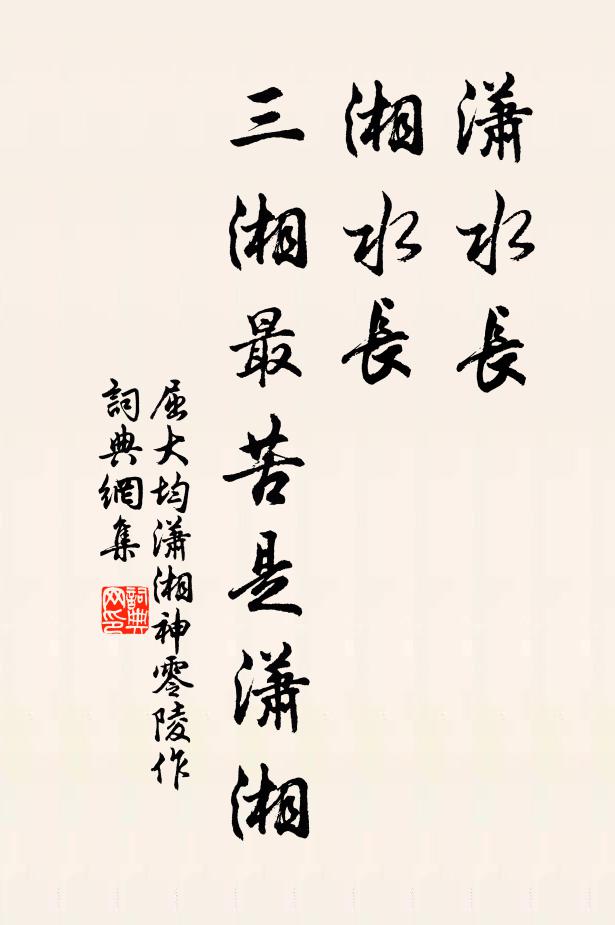 瀟水長
湘水長
三湘最苦是瀟湘
屈大均瀟湘神零陵作
詞典網集
詞典网印